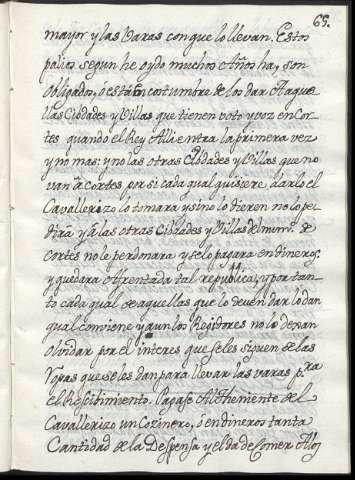 65.
mayor y las Varas con que lo llevan. Estos
palios segun he oydo muchos Años ha, son
obligados, ó estàn en costumbre de los dar Aaque
llas Cibdades y Villas que tienen voto y voz en Cor
tes quando el Rey Alli entra la primera vez
y no mas: y no las otras Cibdades y Villas que no
van à Cortes, por si cada qual quisiere darlo el
Cavallerizo lo tomara y sino lo dieren no lo pe
dirà y à las otras Cibdades y Villas del num.º de
Cortes no le perdonara y se lo pagara en dineros;
y quedara Afrentada tal republica, y por tan
to cada qual de aquellas que lo deven dar lo dan
qual conviene y aun los Regidores no lo dexan
olvidar por el interes que se les siguen de las
Ropas que se les dan para llevar las varas p.ra
el Resçibimiento. Pagase Al themiente del
Cavallerizo un Cozinero, ó en dineros tanta
Cantidad de la Despensa y el da de Comer Alos